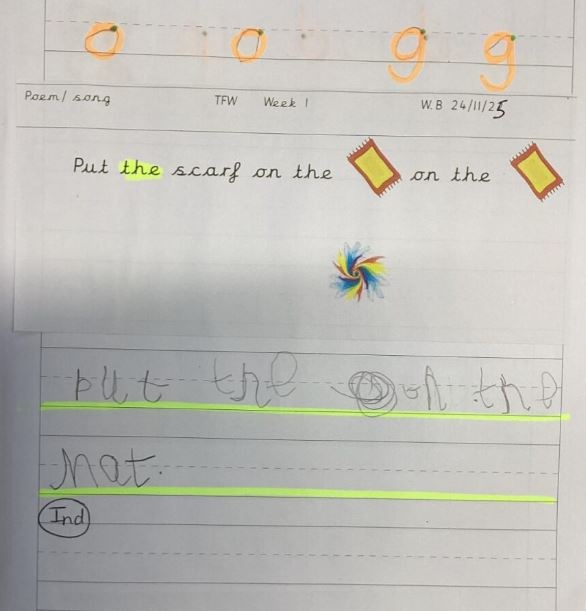 o o g g
Poem/ song TFW Week 1 W.B 24/11/25
Put the scarf on the on the
put the on the
Mat.
Ind